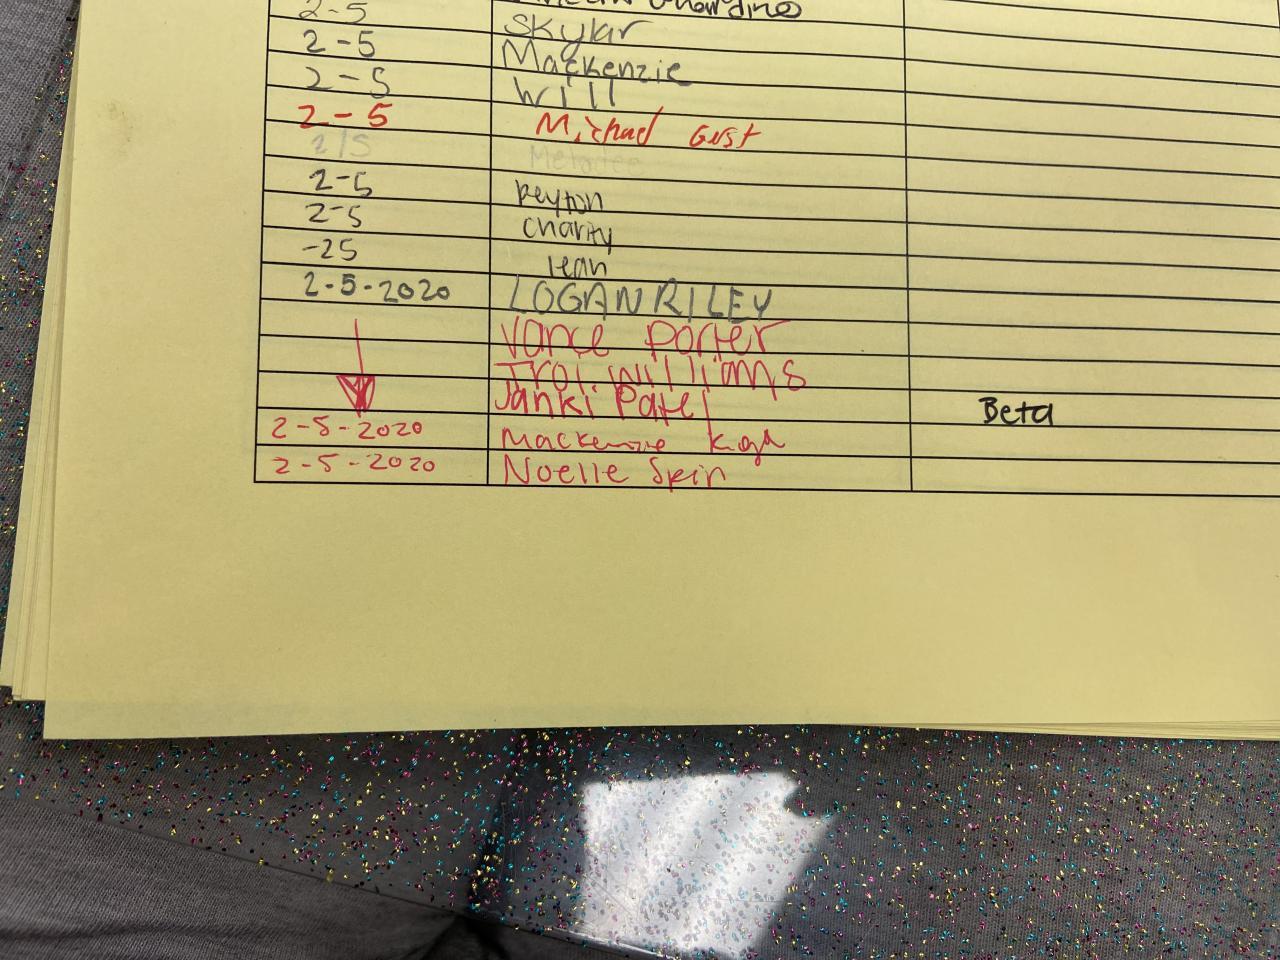 2-5
2-5 Skylar
2-5 Mackenzie
2-5 Will
2-5 Michael Gist
2/5 Melodee
2-5 peyton
2-5 charity
-25 lean
2-5-2020 LOGAN RILEY
Vance Porter
Troi. Williams
Janki Patel Beta
2-5-2020 Mackenzie
2-5-2020 Noelle Spin